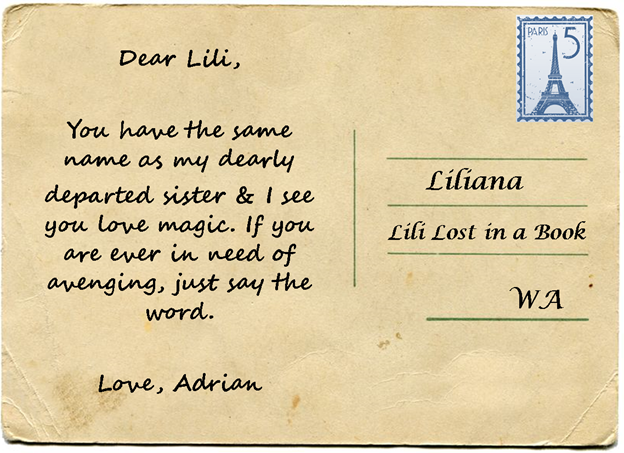 Dear Lili,
You have the same
name as my dearly
departed sister & I see
you love magic. If you
are ever in need of
avenging, just say the
word.
Love, Adrian
PARIS 5
Liliana
Lili Lost in a Book
WA